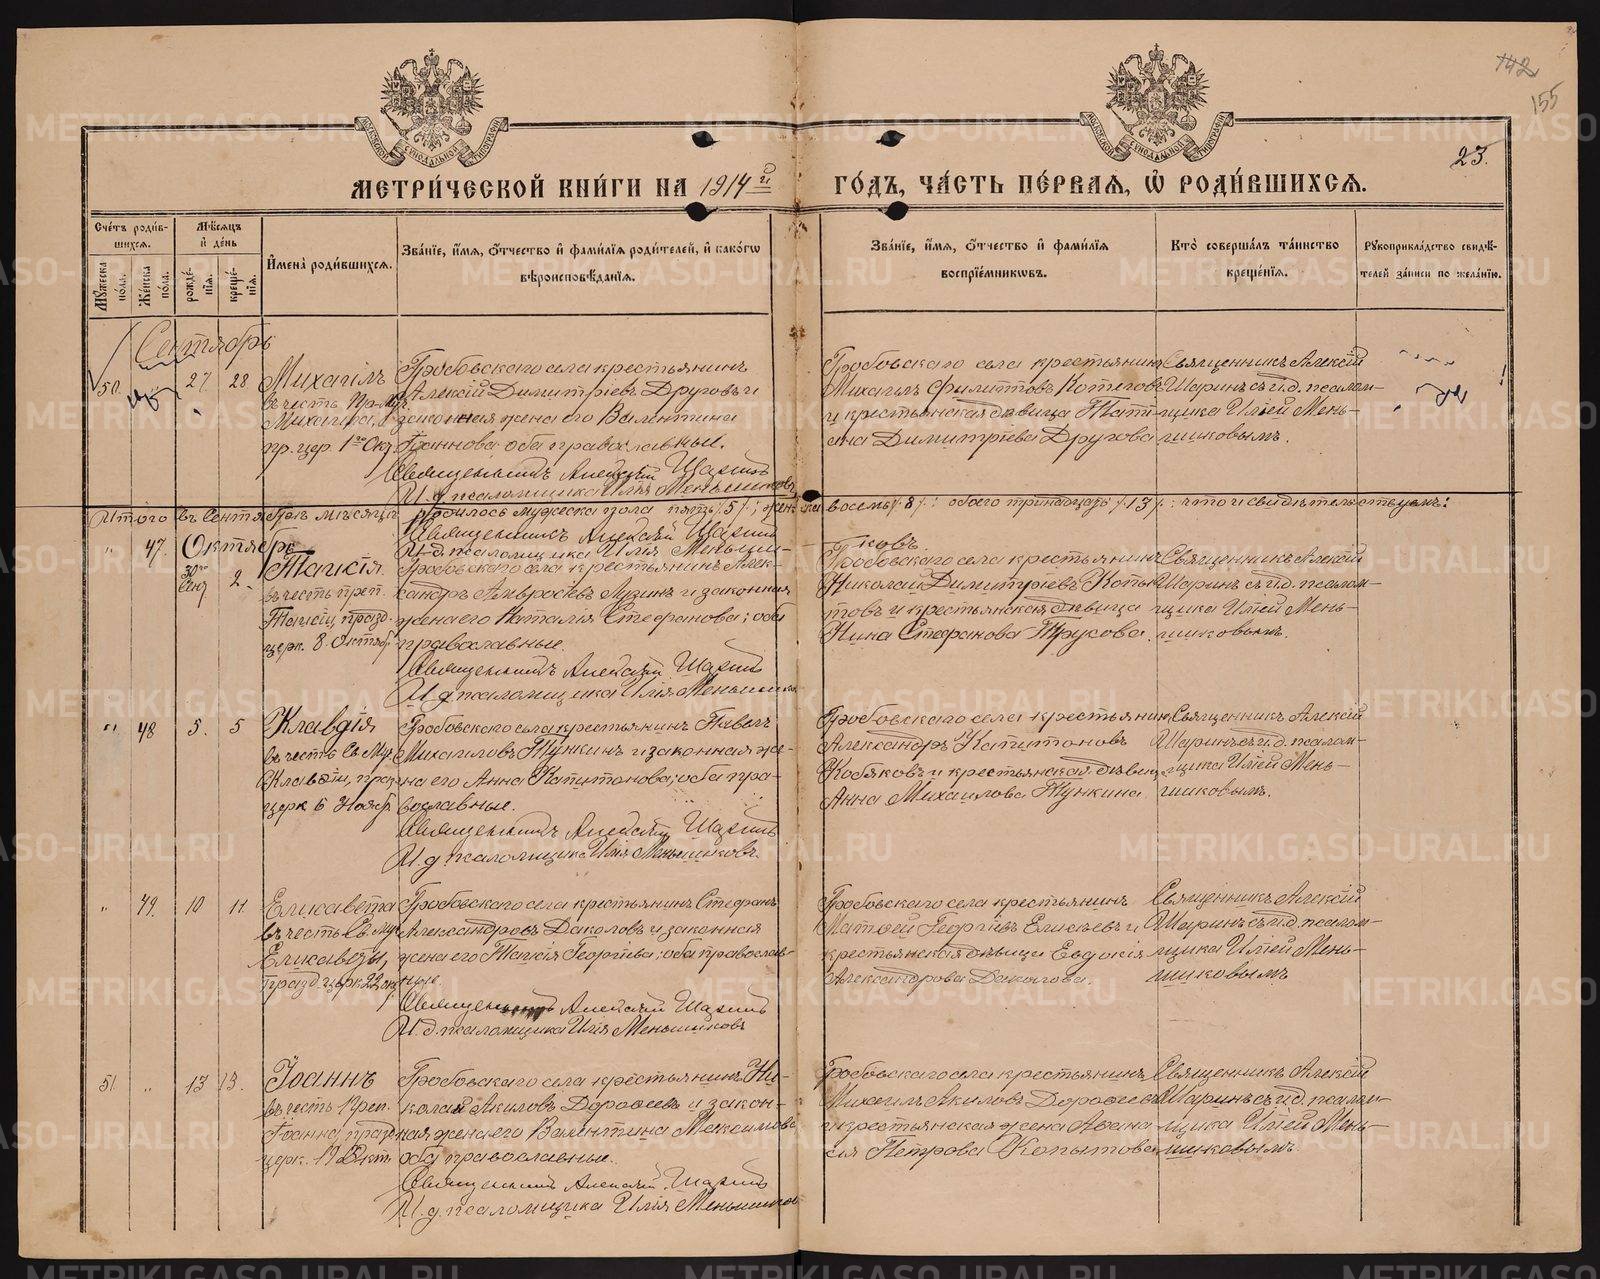 142
155
23.
МЕТРИ́ЧЕСКОЙ КНИ́ГИ НА 1914 г. ГО́ДЪ, ЧА́СТЬ ПЕ́РВАЯ, Ѽ РОДИ́ВШИХСЯ.
Сче́тъ роди́в-
шихся.
Мѣ́сяцъ
и҆ де́нь
Му́жеска
по́ла.
Же́нска
по́ла.
рожде́-
нїя.
креще́-
нїя.
И҆мена̀ роди́вшихся.
Зва́нїе, и҆́мя, ѻ҆́тчество и҆ фами́лїя роди́телей, и҆ како́гѡ
вѣроисповѣ́данїя.
Зва́нїе, и҆́мя, ѻ҆́тчество и҆ фами́лїя
воспрїе́мникѡвъ.
Кто̀ соверша́лъ та́инство
креще́нїя.
Рꙋкоприкла́дство свидѣ́-
телей за́писи по жела́нїю.
Сентябрь
50. 27 28
Михаилъ
въ честь
Михаила,
пр. цер. 1го Окт.
Гробовскаго села крестьянинъ
Алексій Димитріевъ Друговъ и
законная жена его Валентина
Іоаннова оба православные.
Священникъ Алексій Шаринъ
И. д. псаломщика Илія Меньшиковъ
Гробовскаго села крестьянинъ
Михаилъ Филиппов
и крестьянская дѣвица Тати-
ана Димитріева Другова
Священникъ Алексій
Шаринъ съ и. д. псалом-
щика Иліей Мень-
шиковымъ.
Итого въ Сентябрѣ мѣсяцѣ родилось мужеска пола пять /5/; женска восемь /8/: обоего тринадцать /13/: что и свидѣтельствуемъ:
Священникъ Алексій Шаринъ
И. д. псаломщика Илія Меньши-
ковъ.
Октябрь
" 47. 30го Сент 2.
Таисія
въ честь преп.
Таисіи, празд.
церк. 8 Октяб.
Гробовскаго села крестьянинъ Алек-
сандръ Амвросіевъ Лузинъ и законная
жена его Наталія Стефанова; оба
православные.
Священникъ Алексій Шаринъ
И. д. псаломщика Илія Меньшиковъ
Гробовскаго села крестьянинъ
Николай Димитріевъ Копы-
товъ и крестьянская дѣвица
Стефанова Трусова.
Священникъ Алексій
Шаринъ съ и. д. псалом-
щика Иліей Мень-
шиковымъ.
" 48 5. 5
Клавдія
въ честь Св. Му.
Клавдіи, пра.
церк 6 Нояб.
Гробовскаго села крестьянинъ Павелъ
Михаиловъ Тункинъ и законная же-
на его Анна Капитонова; оба пра-
вославные.
Священникъ Алексій Шаринъ
И. д. псаломщика Илія Меньшиковъ.
Гробовскаго села крестьянинъ
Александръ Капитоновъ
Кобяковъ и крестьянская дѣвица
Анна Михаилова Тункина
Священникъ Алексій
Шаринъ съ и. д. псалом-
щика Иліей Мень-
шиковымъ.
" 49. 10 11.
Елисавета
въ честь Св. му.
Елисаветы,
празд. церк. 22 окт.
Гробовскаго села крестьянинъ Стефанъ
Александровъ Даколовъ и законная
жена его Таисія Георгіева; оба православ-
ные.
Священникъ Алексій Шаринъ
И. д. псаломщика Илія Меньшиковъ
Гробовскаго села крестьянинъ
Матѳей Георгіевъ Елисѣевъ и
крестьянская дѣвица Евдокія
Александрова Даколова.
Священникъ Алексій
Шаринъ съ и. д. псалом-
щика Иліей Мень-
шиковымъ
51 " 13 13.
Іоаннъ
въ честь Преп.
Іоанна, празд.
церк. 19 Окт.
Гробовскаго села крестьянинъ Ни-
колай Акиловъ Дороѳеевъ и закон-
ная жена его Валентина Максимова
оба православные.
Священникъ Алексій Шаринъ
И. д. псаломщика Илія Меньшиковъ
Гробовскаго села крестьянинъ
Михаилъ Акиловъ Дороѳеевъ
и крестьянская жена Аѳана-
сія Петрова Копытова
Священникъ Алексій
Шаринъ съ и. д. псалом-
щика Иліей Мень-
шиковымъ.
METRIKI.GASO-URAL.RU